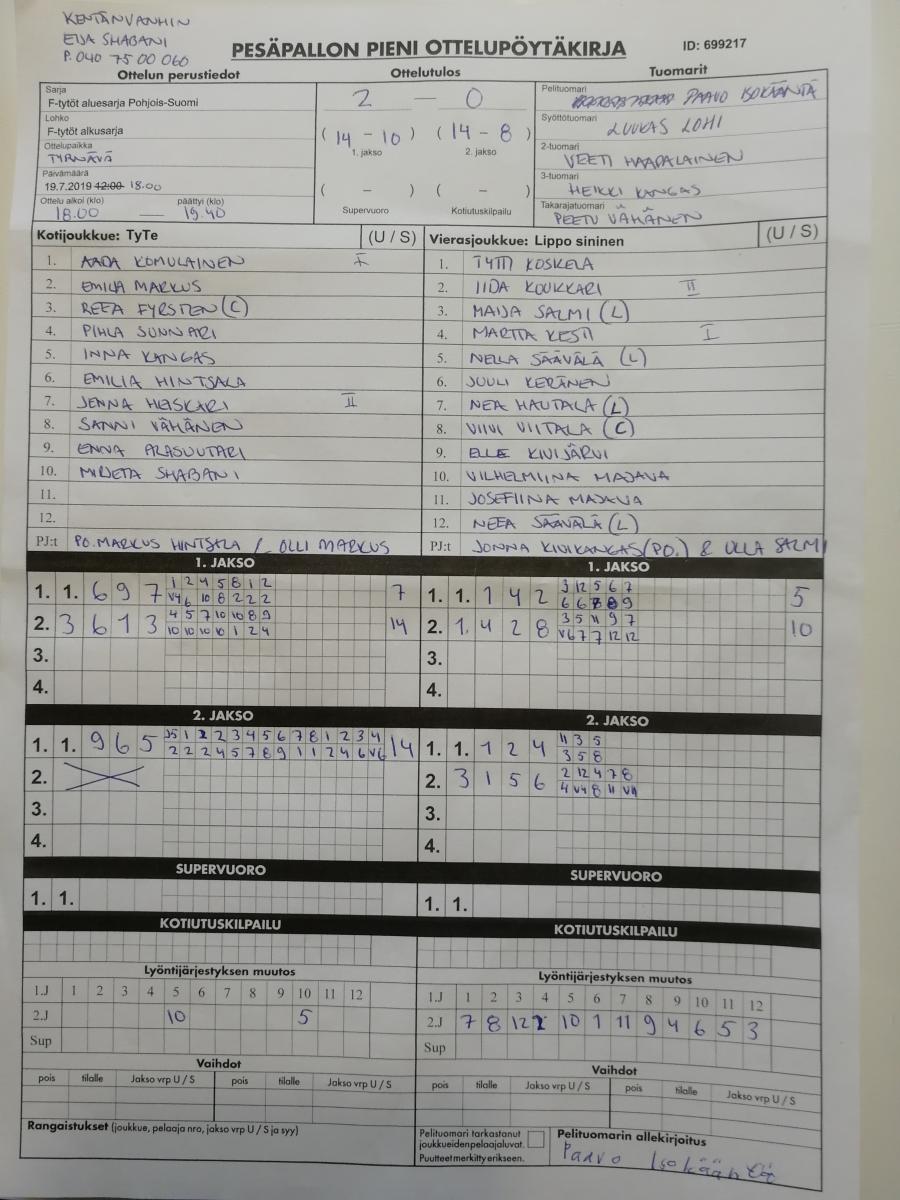 KENTÄNVANHIN
EIJA SHABANI
P. 040 75 00 060
PESÄPALLON PIENI OTTELUPÖYTÄKIRJA
ID: 699217
Ottelun perustiedot
Ottelutulos
Tuomarit
Sarja
F-tytöt aluesarja Pohjois-Suomi
Lohko
F-tytöt alkusarja
Ottelupaikka
TYRNÄVÄ
Päivämäärä
19.7.2019 12:00 18.00
Ottelu alkoi (klo) päättyi (klo)
18.00 — 19.40
2 — 0
(14 - 10) (14 - 8)
1. jakso 2. jakso
( - ) ( - )
Supervuoro Kotiutuskilpailu
Pelituomari
PAAVO ISOKÄÄNTÄ
Syöttötuomari
LUUKAS LOHI
2-tuomari
VEETI HAAPALAINEN
3-tuomari
HEIKKI KANGAS
Takarajatuomari
PEETU VÄHÄNEN
Kotijoukkue: TyTe (U / S)
1. AADA KOMULAINEN I
2. EMILIA MARKUS
3. REEA FYRSTEN (C)
4. PIHLA SUNNARI
5. INNA KANGAS
6. EMILIA HINTSALA
7. JENNA HEISKARI II
8. SANNI VÄHÄNEN
9. ENNA ALASUUTARI
10. MIRJETA SHABANI
11.
12.
PJ:t PO. MARKUS HINTSALA / OLLI MARKUS
Vierasjoukkue: Lippo sininen (U / S)
1. TYTTI KOSKELA
2. IIDA KOUKKARI II
3. MAIJA SALMI (L)
4. MARTTA KESTI I
5. NELLA SÄÄVÄLÄ (L)
6. JUULI KERÄNEN
7. NEA HAUTALA (L)
8. VIIVI VIITALA (C)
9. ELLE KIVIJÄRVI
10. VILHELMIINA MAJAVA
11. JOSEFIINA MAJAVA
12. NEEA SÄÄVÄLÄ (L)
PJ:t JONNA KIVIKANGAS (PO.) & ULLA SALMI
1. JAKSO
1. 1. 6 9 7 1 2 4 5 8 1 2 7
V4 6 10 8 2 2 2
2. 3 6 1 3 4 5 7 10 10 8 9 14
10 10 10 10 1 2 4
3.
4.
1. JAKSO
1. 1. 1 4 2 3 12 5 6 7 5
6 6 8 8 9
2. 1. 4 2 8 3 5 11 9 7 10
V6 7 7 12 12
3.
4.
2. JAKSO
1. 1. 9 6 5 1 2 2 3 4 5 6 7 8 1 2 3 4 14
2 2 2 4 5 7 8 9 1 1 2 4 6 V6
2.
3.
4.
2. JAKSO
1. 1. 1 2 4 11 3 5
3 5 8
2. 3 1 5 6 2 12 4 7 8
4 V4 8 11 V11
3.
4.
SUPERVUORO
1. 1.
SUPERVUORO
1. 1.
KOTIUTUSKILPAILU
KOTIUTUSKILPAILU
Lyöntijärjestyksen muutos
1.J 1 2 3 4 5 6 7 8 9 10 11 12
2.J 10 5
Sup
Lyöntijärjestyksen muutos
1.J 1 2 3 4 5 6 7 8 9 10 11 12
2.J 7 8 12 2 10 1 11 9 4 6 5 3
Sup
Vaihdot
pois tilalle Jakso vrp U / S pois tilalle Jakso vrp U / S
Vaihdot
pois tilalle Jakso vrp U / S pois tilalle Jakso vrp U / S
Rangaistukset (joukkue, pelaaja nro, jakso vrp U / S ja syy)
Pelituomari tarkastanut
joukkueiden pelaajaluvat.
Puutteet merkitty erikseen.
Pelituomarin allekirjoitus
Paavo Isokääntä